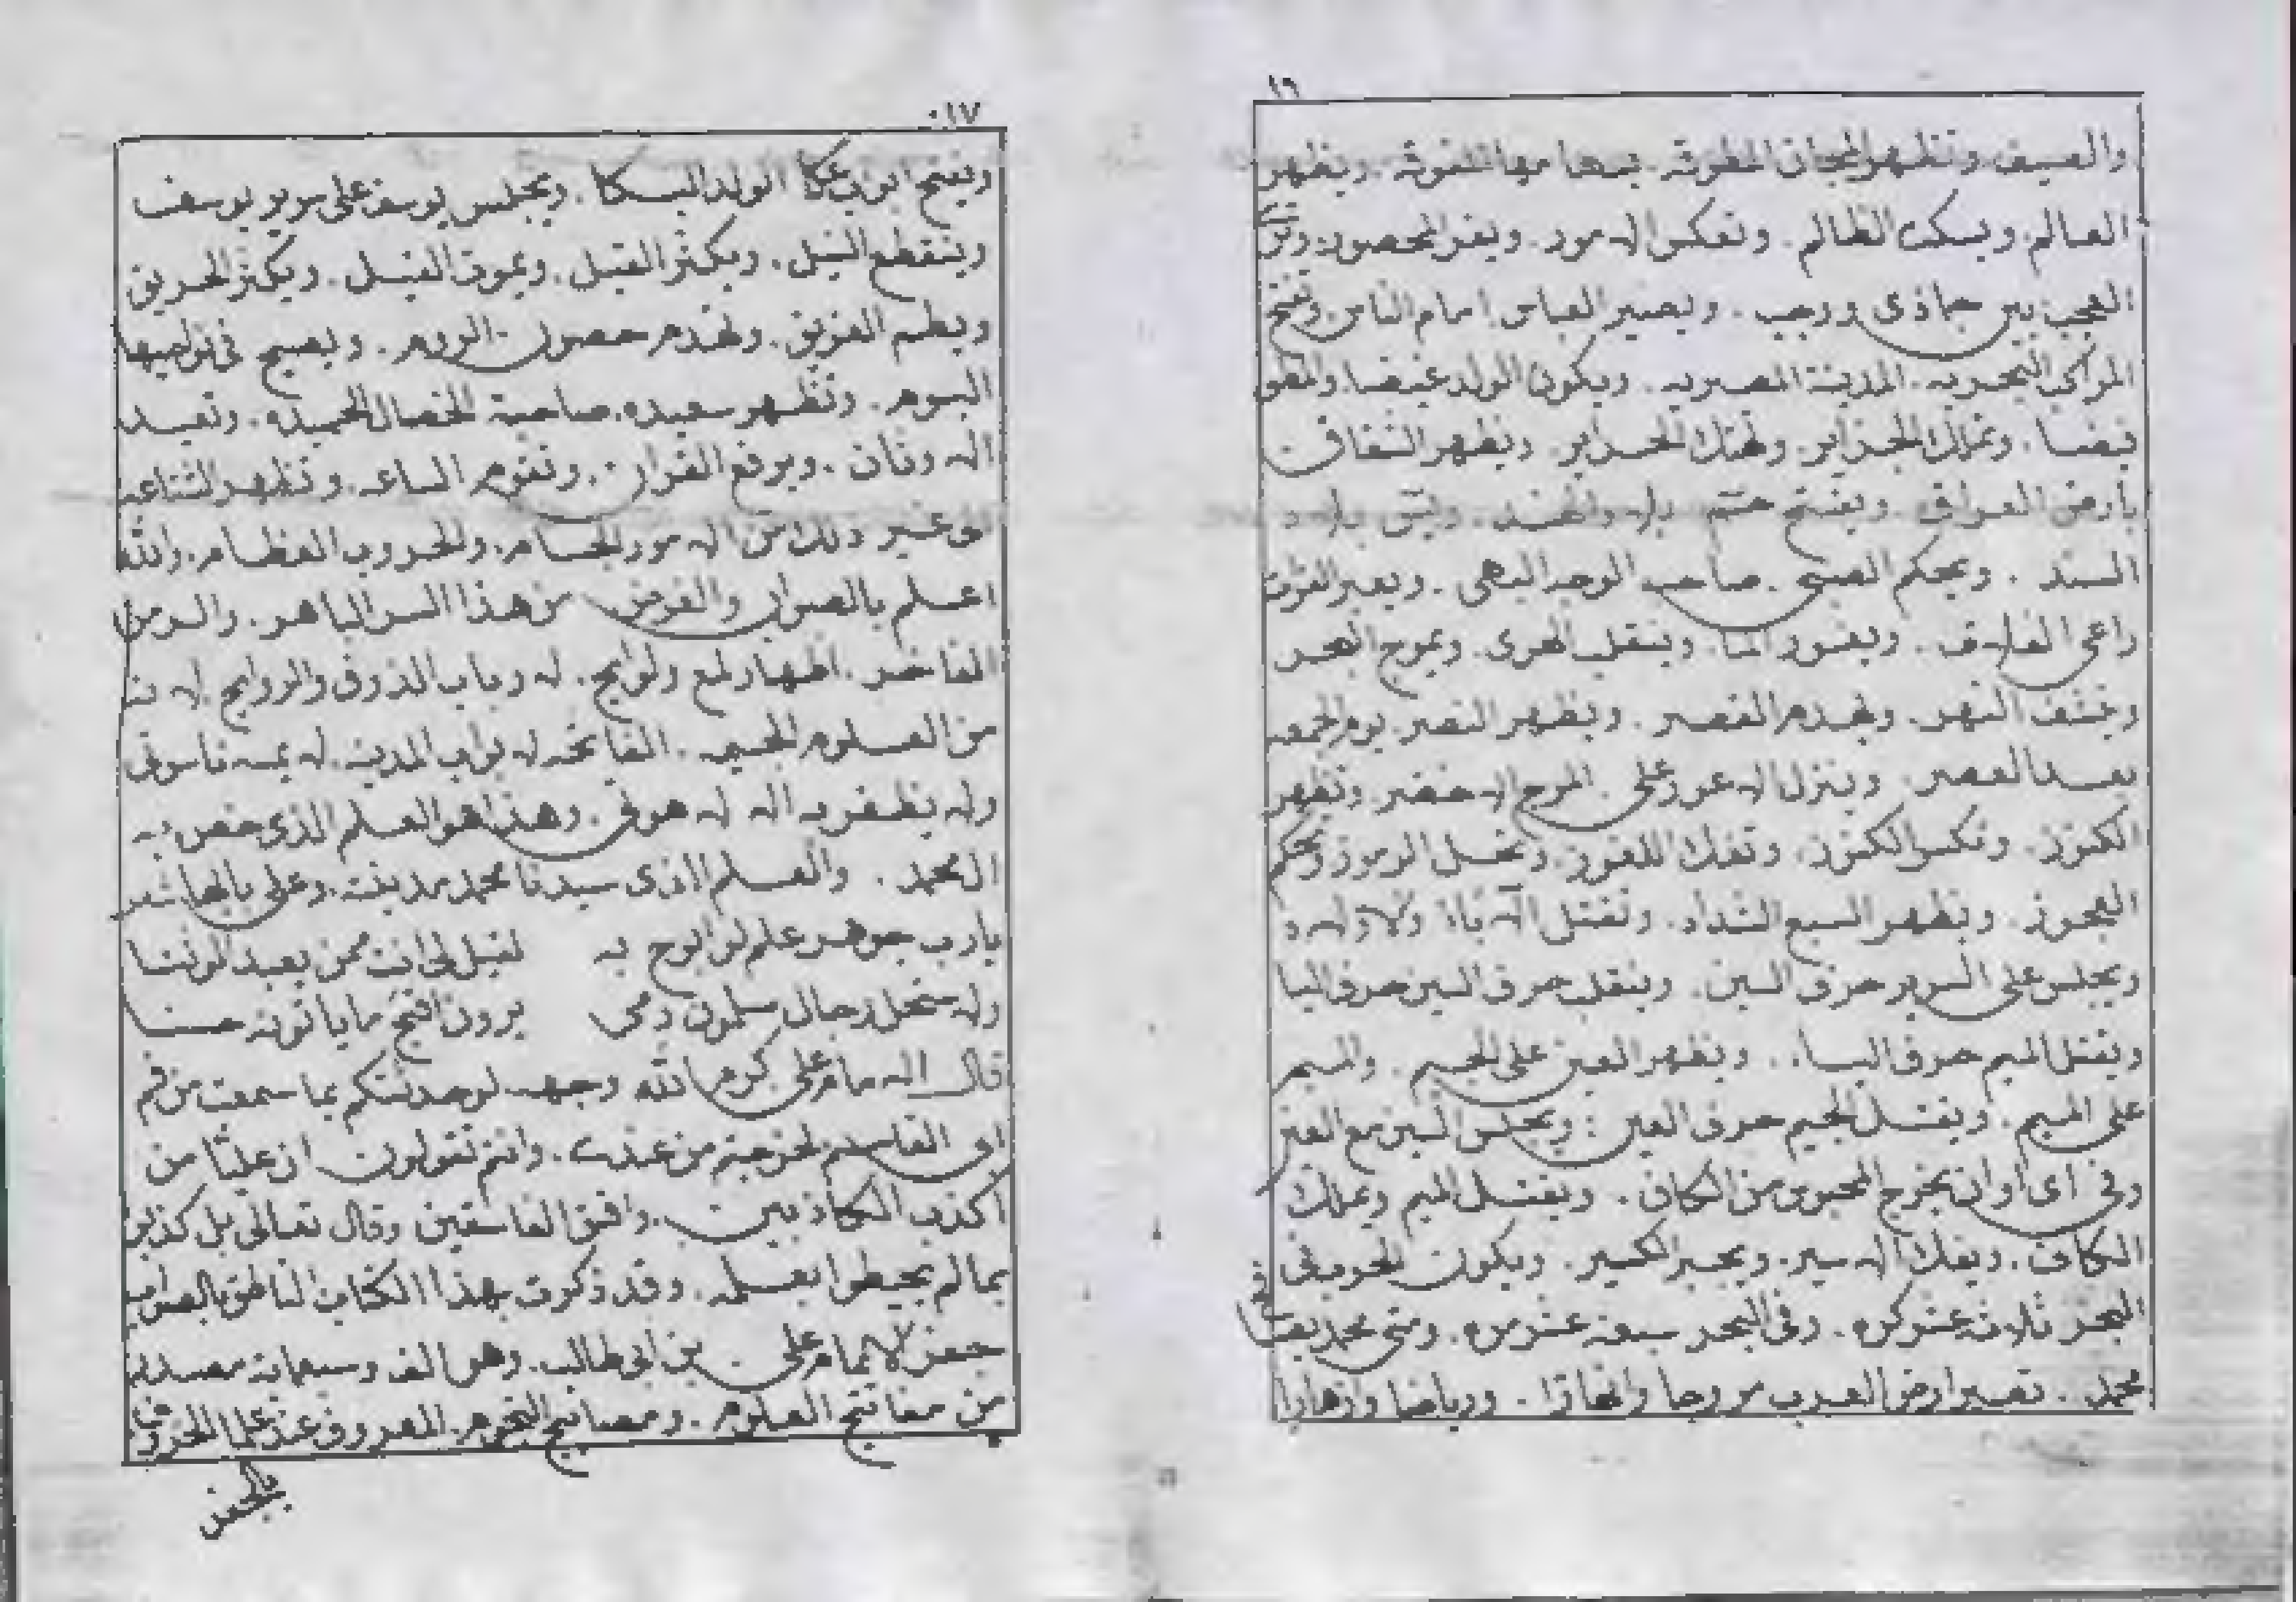 ١٦
والصيف وتظهر المجان المطرقة
العالم ويسكت الظالم . وتعكس الامور . ويفر المحصور
العجب بين جماذى ورجب . ويصير العباس امام الناس . وتفتح
المراكب البحريه . المدينة المصريه . ويكون الولد غيضا . والمطر
فيضا . وتملك الجزاير . وتهتك الحراير . ويظهر الشقاق
بأرض العراق . ويفتح بلاد الهند . بلاد
السند . ويحكم الصبى . صاحب الوجه البهى . ويعبر الفرات
راعى . ويغور الما . وينقلب الهوى . ويموج البحر
وينشف النهر . ويهدم القصر . ويظهر النصر . يوم الجمعه
بعد العصر . وينزل الاعور على المرج الاخضر . وتظهر
الكنوز . وتفك اللغوز . وتحل الرموز وتحكم
العجوز . ويظهر السبع الشداد . وتقتل الآباء والاولاد
ويجلس على السرير حرف السين . وينقلب حرف السين حرف اليا
ويقتل الميم حرف اليا . ويظهر العين على الجيم . والميم
على الميم . ويقتل الجيم حرف العين : ويجلس السين مع العين
وفى اى اوان يخرج المحبوس من الكاف . ويقتل الميم ويملك
الكاف . ويفك الاسير . ويجبر الكسير . ويكون الحرب فى
البحر ثلاثة عشر كره . وفى البحر سبعة عشر مره . ومتى محمد
محمد . تصير ارض العرب مروجا وانهارا . ورياضا وازهارا
١٧
ويفتح ابواب عكا الولد البكا . ويجلس يوسف على سرير يوسف
وينقطع النيل . ويكثر القتيل . ويموت الفيل . ويكثر الحريق
ويطم الغريق . وتهدم حصون الروم . ويصيح فى نواحيها
البوم . وتظهر سعيده . صاحبة الخصال الحميده . وتعبد
الاوثان . ويرفع القران . وتقوم الساعه . وتظهر الشناعه
الى غير ذلك من الامور الجسام . والحروب العظام . والله
اعلم بالصواب والغرض من هذا السر الباهر . والرمز
الفاخر . اظهار لمع ولوايح . لارباب الذوق والروايح
من العلوم . الفاتحه لابواب المدينه . لا يمسه ناسوتى
ولا يظفر به الا لاهوتى . وهذا هو العلم الذى خص به
ال محمد . والعلم الذى سيدنا محمد مدينته . وعلى بابها شعر
يارب جوهر علم لو ابوح به لقيل لى انت ممن يعبد الوثنا
ولاستحل رجال مسلمون دمى يرون اقبح ما ياتونه حسنا
قال الامام على كرم الله وجهه لو حدثتكم بما سمعت من فم
ابى القاسم لخرجتم من عندى . وانتم تقولون ان عليا من
اكذب الكاذبين . وافسق الفاسقين وقال تعالى بل كذبوا
بما لم يحيطوا بعلمه . وقد ذكرت بهذا الكتاب الناطق بالصواب
جفر الامام على بن ابى طالب . وهو الف وسبعمائة
من مفاتيح العلوم . ومصابيح النجوم . المعروف عند علما الحروف
بالجفر